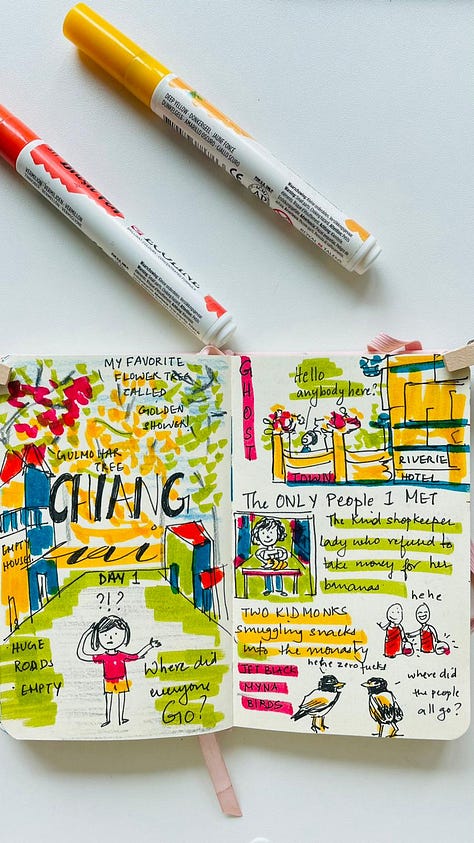 DEEP YELLOW · DONKERGEEL · JAUNE FONCÉ
DUNKELGELB · AMARILLO OSCURO · GIALLO SCURO
CE
ECOLINE
MY FAVORITE
FLOWER TREE
CALLED
GOLDEN
SHOWER
GULMOHAR
TREE
CHIANG
EMPTY
HOUSES
DAY 1
?!?
· HUGE
ROADS
· EMPTY
Where did
everyone
GO?
GHOST
TOWN
Hello
anybody here?
RIVERIE
HOTEL
The ONLY People I MET
The kind shopkeeper
lady who refused to
take money for her
bananas
hehe
TWO KID MONKS
smuggling snacks
into the monasty
hehe zero fucks
JET BLACK
MYNA
BIRDS
where did
the people
all go?